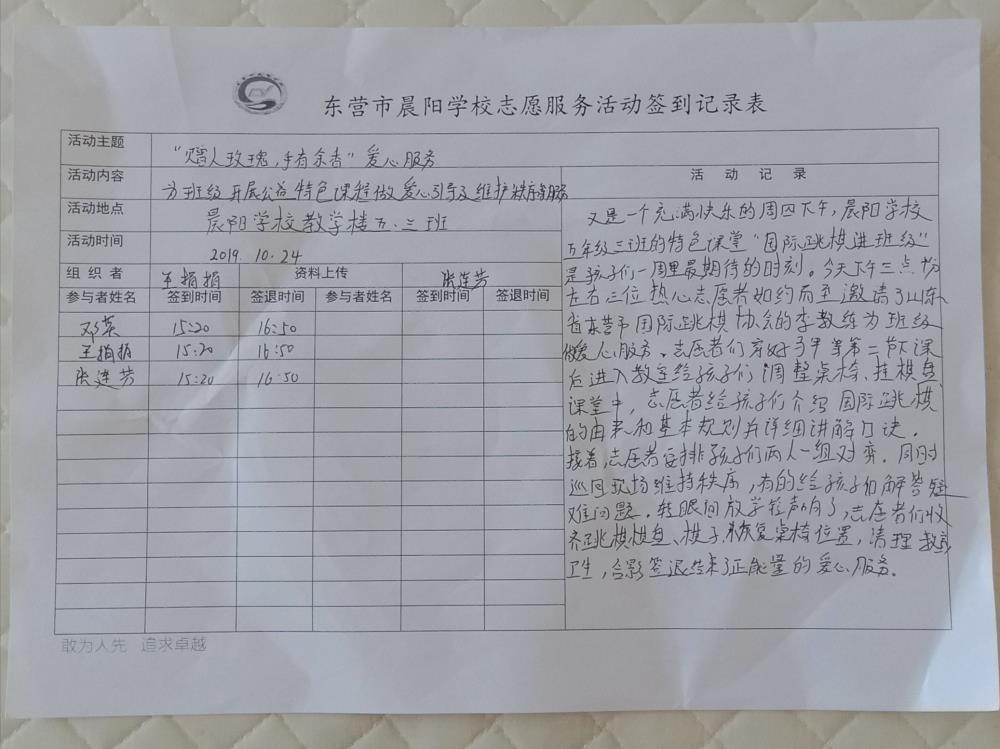 东营市晨阳学校志愿服务活动签到记录表
活动主题 "赠人玫瑰,手有余香"爱心服务
活动内容 为班级开展公益特色课程做爱心引导及维护秩序等服务
活动地点 晨阳学校教学楼五.三班
活动时间 2019. 10. 24
组织者 王娟娟 资料上传 张连芳
参与者姓名 签到时间 签退时间 参与者姓名 签到时间 签退时间
邓英 15:20 16:50
王娟娟 15:20 16:50
张连芳 15:20 16:50
活动记录
又是一个充满快乐的周四下午,晨阳学校
五年级三班的特色课堂"国际跳棋进班级"
是孩子们一周里最期待的时刻。今天下午三点
左右三位热心志愿者如约而至邀请了山东
省东营市国际跳棋协会的李教练为班级
做爱心服务。志愿者们等第二节下课
后进入教室给孩子们调整桌椅、挂棋盘.
课堂中,志愿者给孩子们介绍国际跳棋
的由来和基本规则并详细讲解口诀.
接着,志愿者安排孩子们两人一组对弈.同时
巡回现场维持秩序,有的给孩子们解答疑
难问题.转眼间放学铃声响了,志愿者们收
齐跳棋棋盘、棋子.恢复桌椅位置,清理教室
卫生,合影签退结束了正能量的爱心服务.
敢为人先 追求卓越